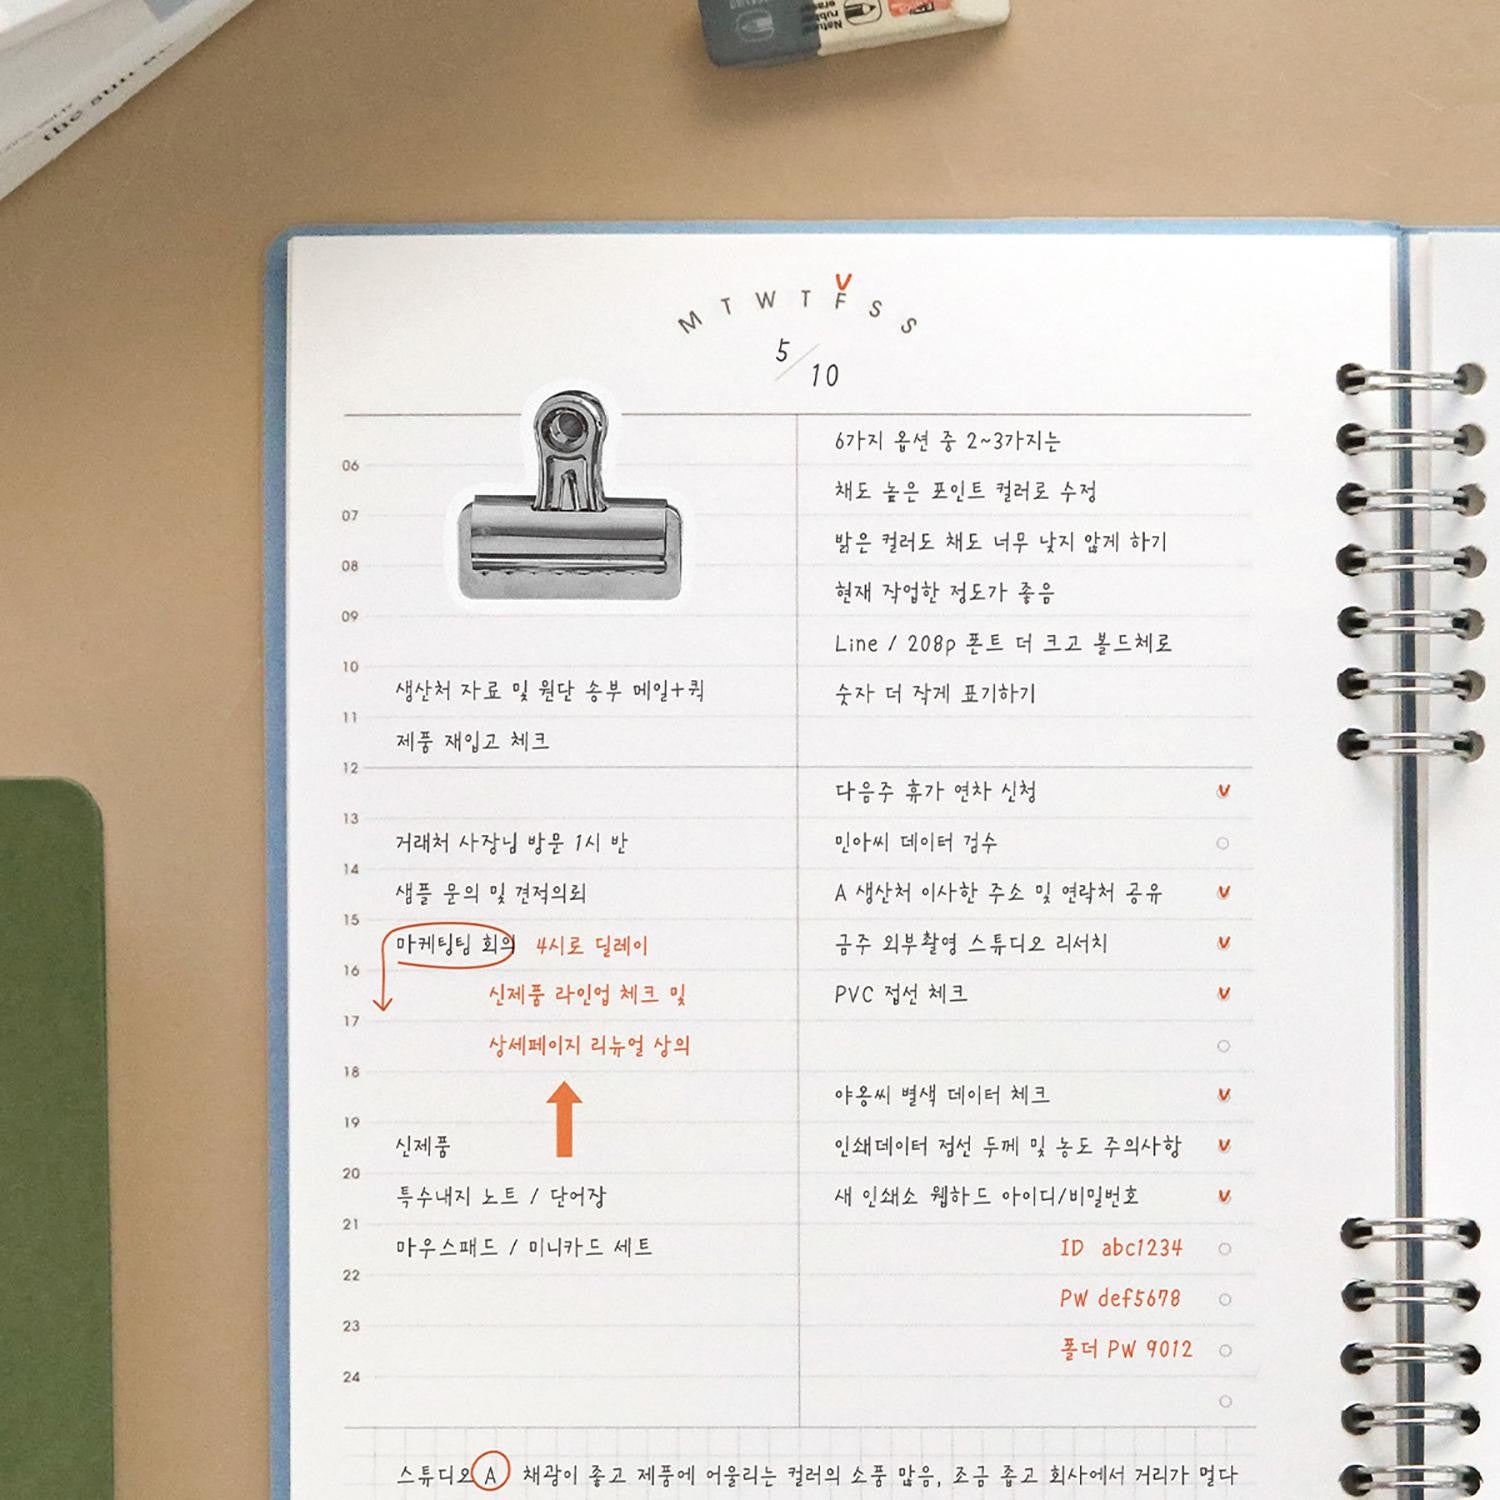 the sun
Natural
M T W T F S S
V
5/10
6가지 옵션 중 2~3가지는
06
채도 높은 포인트 컬러로 수정
07
밝은 컬러도 채도 너무 낮지 않게 하기
08
현재 작업한 정도가 좋음
09
Line / 208p 폰트 더 크고 볼드체로
10
생산처 자료 및 원단 송부 메일+퀵
숫자 더 작게 표기하기
11
제품 재입고 체크
12
다음주 휴가 연차 신청 v
13
거래처 사장님 방문 1시 반
민아씨 데이터 검수
14
샘플 문의 및 견적의뢰
A 생산처 이사한 주소 및 연락처 공유 v
15
마케팅팀 회의 4시로 딜레이
금주 외부촬영 스튜디오 리서치 v
16
신제품 라인업 체크 및
PVC 접선 체크 v
17
상세페이지 리뉴얼 상의
18
야옹씨 별색 데이터 체크 v
19
신제품
인쇄데이터 점선 두께 및 농도 주의사항 v
20
특수내지 노트 / 단어장
새 인쇄소 웹하드 아이디/비밀번호 v
21
마우스패드 / 미니카드 세트
ID abc1234
22
PW def5678
23
폴더 PW 9012
24
스튜디오 A 채광이 좋고 제품에 어울리는 컬러의 소품 많음, 조금 좁고 회사에서 거리가 멀다